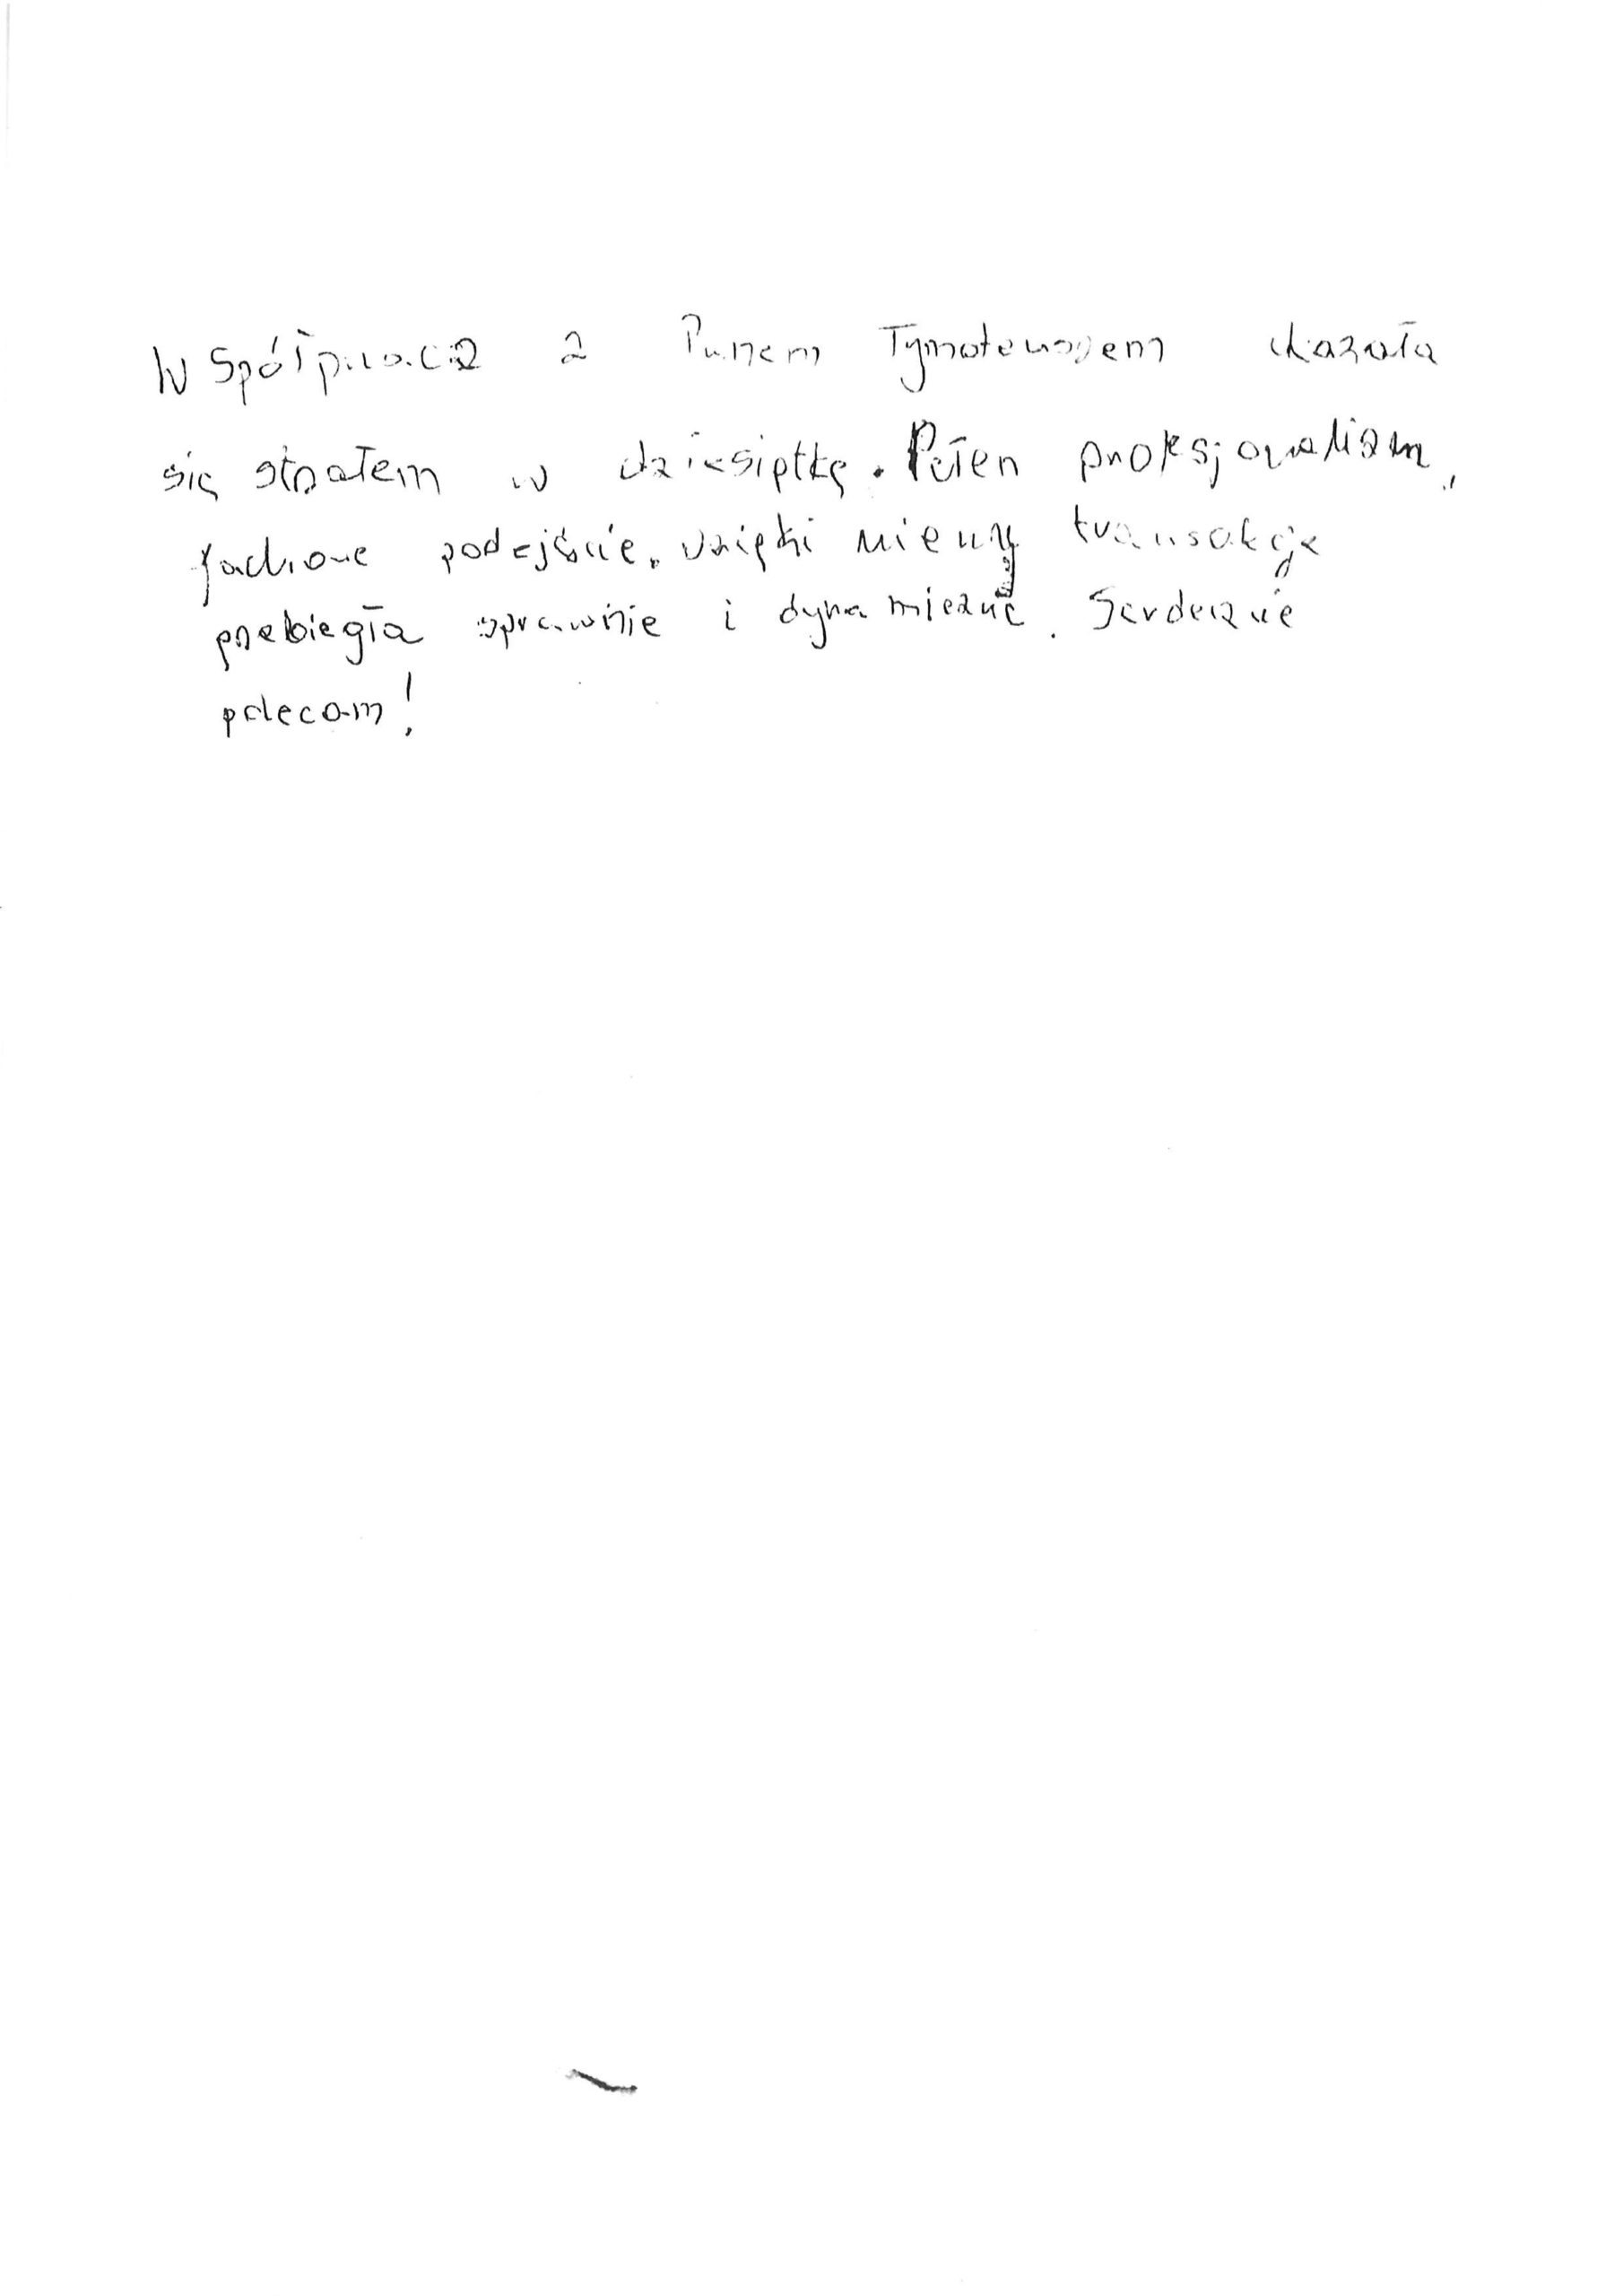 Współpraca z Panem Tymoteuszem okazała
się strzałem w dziesiątkę. Pełen profesjonalizm,
fachowe podejście. Dzięki niemu transakcja
przebiegła sprawnie i dynamicznie. Serdecznie
polecam!